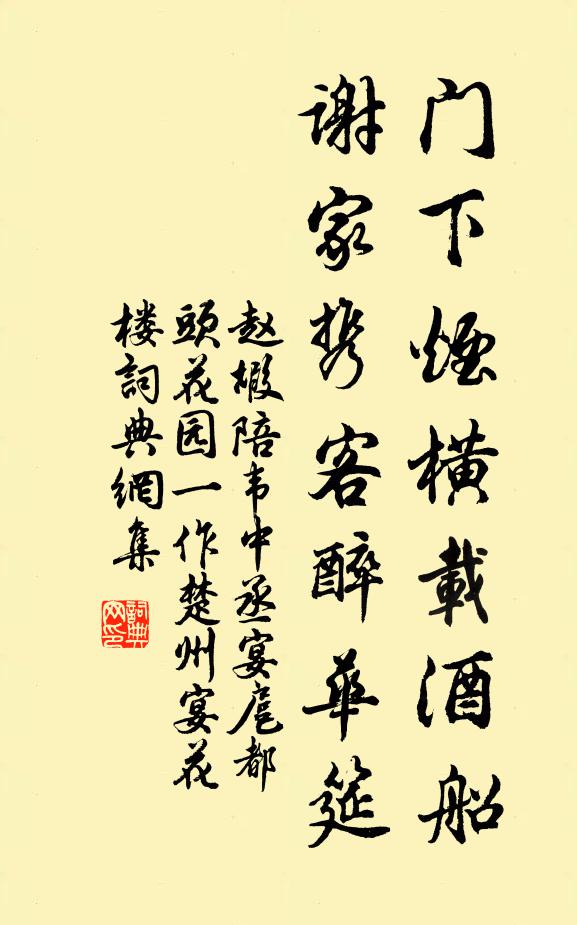 门下烟横載酒船
谢家携客醉華筵
赵嘏陪韦中丞宴扈都
頭花园一作楚州宴花
楼詞典網集
詞典网印